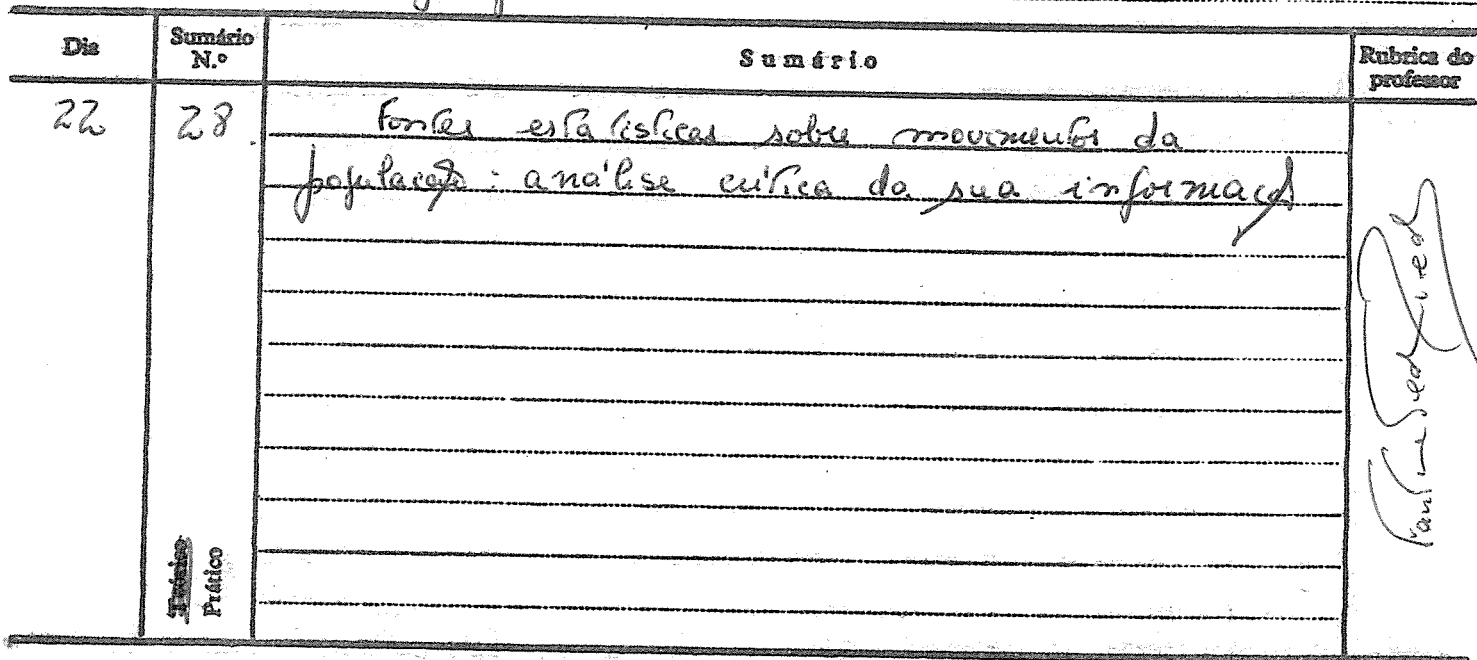 Dia
Sumário N.º
Sumário
Rubrica do professor
22
28.
Fontes estatísticas sobre movimentos da
população: análise crítica da sua informação
Teórico
Prático